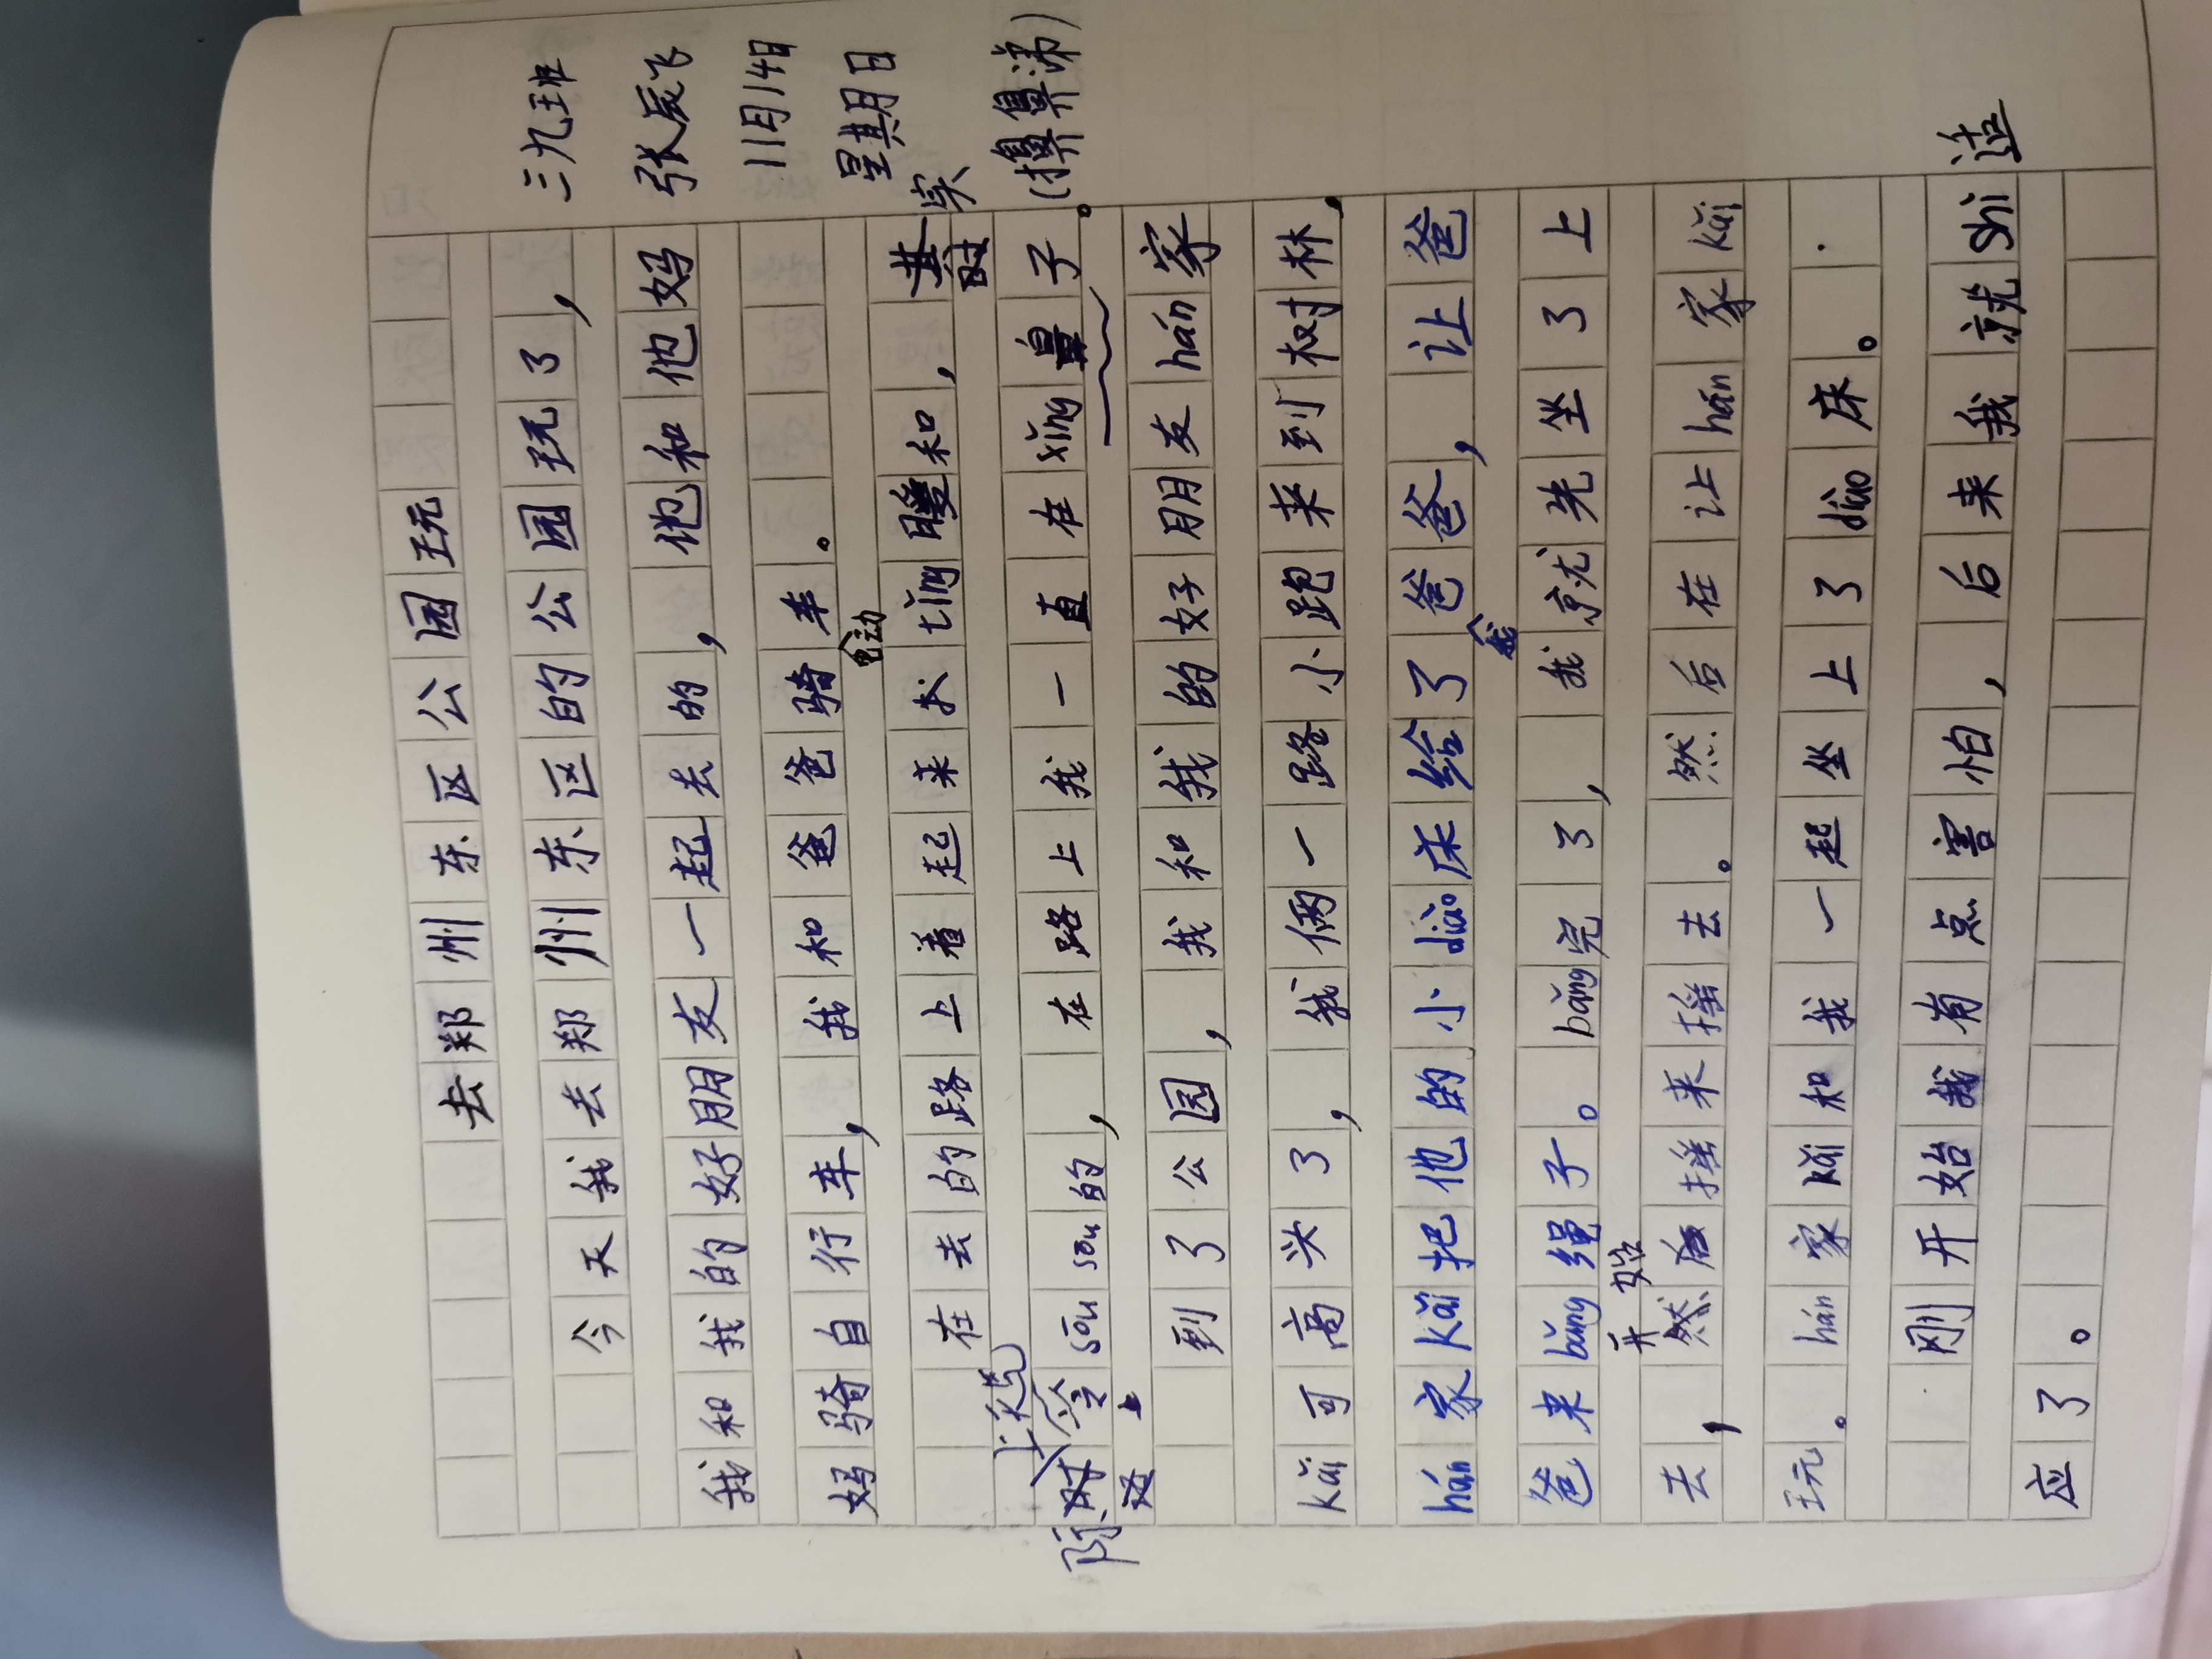 二九班
张辰飞
11月14日
星期日
去郑州东区公园玩
今天我去郑州东区的公园玩了，
我和我的好朋友一起去的，他和他妈
妈骑自行车，我和爸爸骑车。
电动
在去的路上看起来才tíng暖和，其
实
时
阵
冷sōusōu的，在路上我一直在xǐng鼻子。
(擤鼻涕)
到了公园，我和我的好朋友hán家
kǎi可高兴了，我俩一路小跑来到树林，
hán家kǎi把他的小diào床给了爸爸，让爸
我
爸来bǎng绳子。bǎng完了，我就先坐了上
开始
去，然后摇来摇去。然后在让hán家kǎi
玩。hán家kǎi和我一起坐上了diào床。
刚开始我有点害怕，后来我就shì
适
应了。